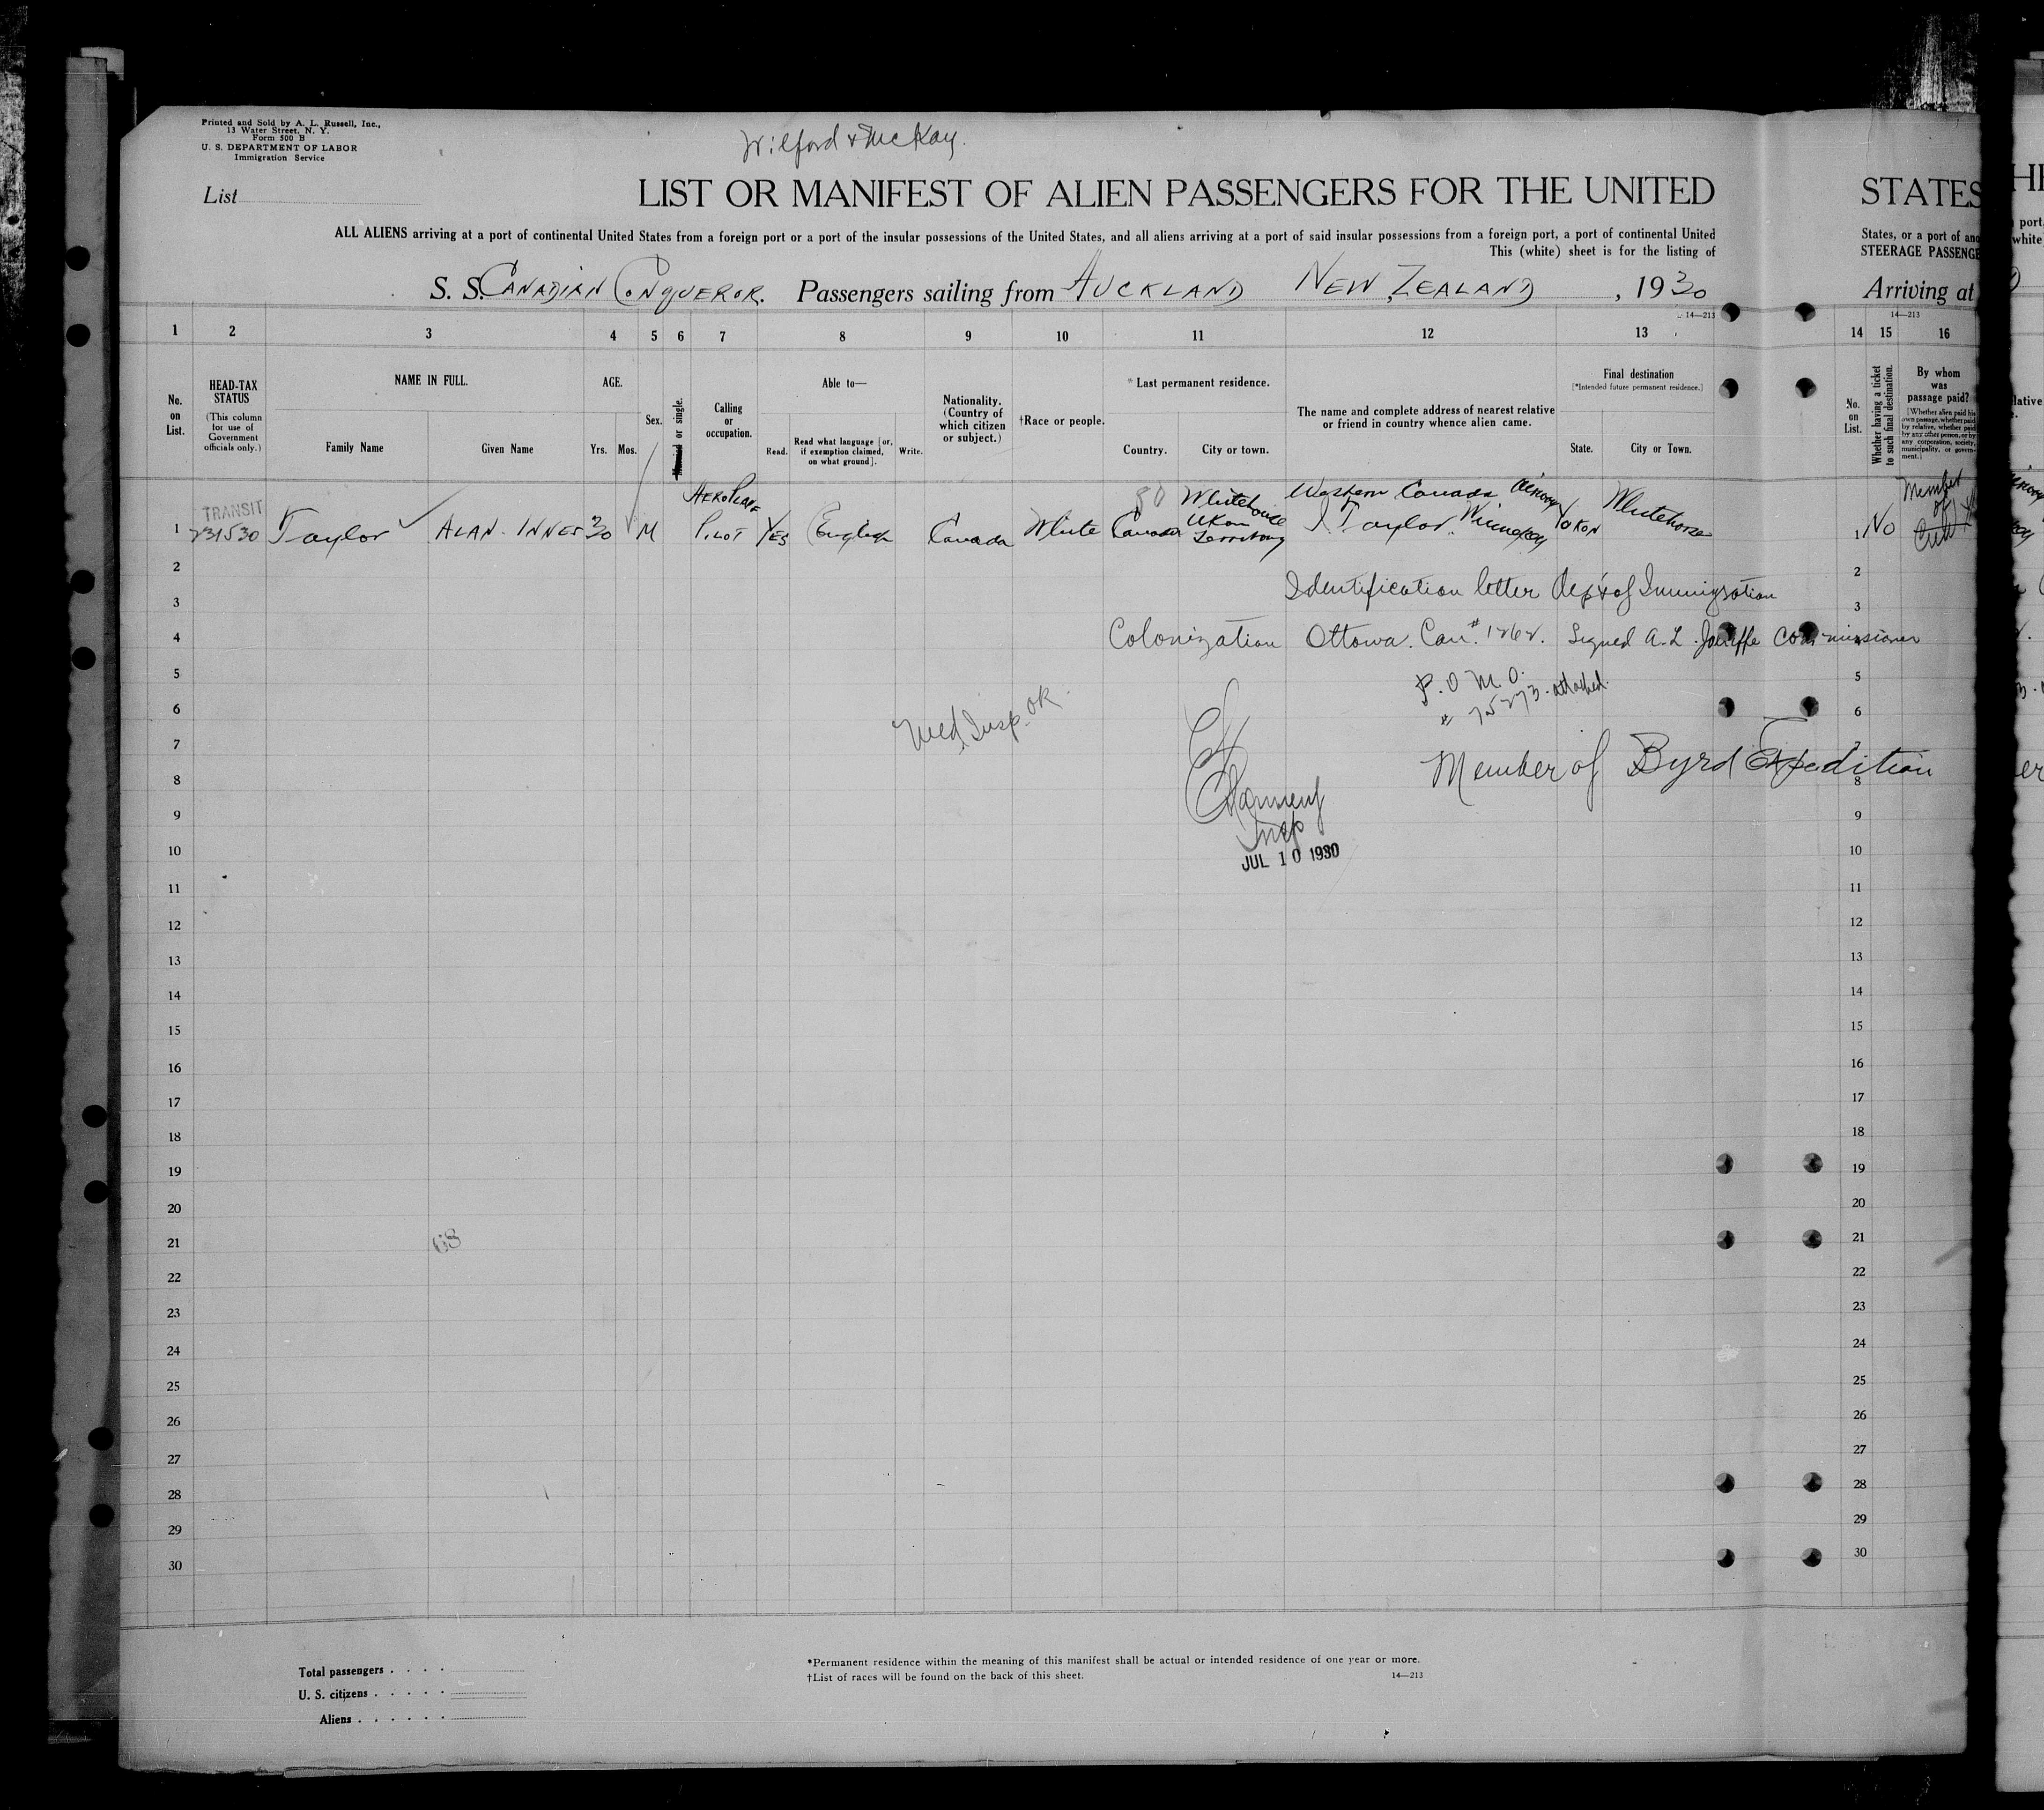 Printed and Sold by A. L. Russell, Inc.,
13 Water Street, N. Y.
Form 500 B
U. S. DEPARTMENT OF LABOR
Immigration Service
Wilford & McKay.
List
LIST OR MANIFEST OF ALIEN PASSENGERS FOR THE UNITED STATES
ALL ALIENS arriving at a port of continental United States from a foreign port or a port of the insular possessions of the United States, and all aliens arriving at a port of said insular possessions from a foreign port, a port of continental United States, or a port of
This (white) sheet is for the listing of STEERAGE PASSENGE
S. S. CANADIAN CONQUEROR. Passengers sailing from AUCKLAND NEW ZEALAND, 1930 Arriving at
14—213 14—213
1 2 3 4 5 6 7 8 9 10 11 12 13 14 15 16
No. on List.
HEAD-TAX STATUS
(This column for use of Government officials only.)
NAME IN FULL.
Family Name Given Name
AGE.
Yrs. Mos.
Sex.
or single.
Calling or occupation.
Able to—
Read. Read what language [or, if exemption claimed, on what ground]. Write.
Nationality. (Country of which citizen or subject.)
†Race or people.
*Last permanent residence.
Country. City or town.
The name and complete address of nearest relative or friend in country whence alien came.
Final destination
[*Intended future permanent residence.]
State. City or Town.
No. on List.
Whether having a ticket to such final destination.
By whom was passage paid?
[Whether alien paid his own passage, whether paid by relative, whether paid by any other person, or by any corporation, society, municipality, or government.]
TRANSIT
1 231530 Taylor ALAN. INNES 30 M AEROPLANE PILOT YES English Canada White Canada Whitehorse Ukon Territory Western Canada Airway Taylor. Winnipeg YOKON Whitehorse 1 No Member of
80
2 2
Identification letter Dep't of Immigration
3 3
4 Colonization Ottowa. Can. # 1262. Signed A. L. Jolliffe Commissioner 4
5 P. O M. O. 5
# 75273. attached.
6 Med. Insp. OK. 6
7 7
Member of Byrd Expedition
8 8
9 9
Insp
10 JUL 10 1930 10
11 11
12 12
13 13
14 14
15 15
16 16
17 17
18 18
19 19
20 20
21 68 21
22 22
23 23
24 24
25 25
26 26
27 27
28 28
29 29
30 30
Total passengers
U. S. citizens
Aliens
*Permanent residence within the meaning of this manifest shall be actual or intended residence of one year or more.
†List of races will be found on the back of this sheet. 14—213